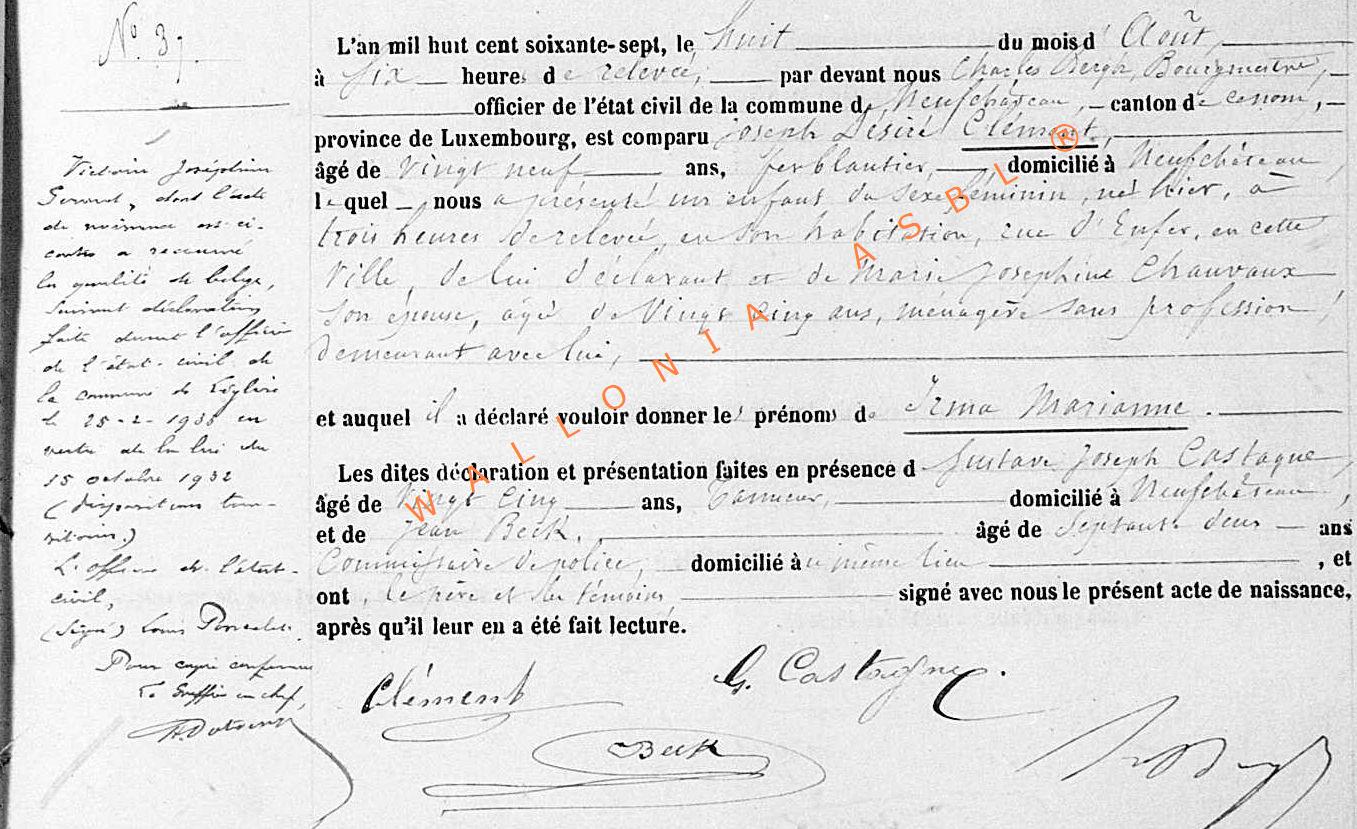 N° 37.
L'an mil huit cent soixante-sept, le huit du mois d'Août,
à six heures de relevée, par devant nous Charles Bergh, Bourgmestre,
officier de l'état civil de la commune de Neufchâteau, canton de ce nom,
province de Luxembourg, est comparu Joseph Désiré Clément,
âgé de Vingt neuf ans, ferblantier, domicilié à Neufchâteau,
lequel nous a présenté un enfant du sexe féminin, né hier, à
trois heures de relevée, en son habitation, rue d'Enfer, en cette
Ville, de lui déclarant et de Marie Josephine Chauvaux
son épouse, âgée de Vingt Cinq ans, ménagère sans profession,
demeurant avec lui,
et auquel il a déclaré vouloir donner les prénoms de Irma Marianne.
Les dites déclaration et présentation faites en présence de Gustave Joseph Castagne,
âgé de Vingt Cinq ans, Tanneur, domicilié à Neufchâteau,
et de Jean Beck, âgé de Septante deux ans
Commissaire de police, domicilié au même lieu, et
ont, le père et les témoins signé avec nous le présent acte de naissance,
après qu'il leur en a été fait lecture.
Clément
G. Castagne
Beck
Victoire Joséphine
dont l'acte
de naissance est ci-
contre a recouvré
la qualité de belge,
suivant déclaration
faite devant l'officier
de l'état-civil de
la commune de Léglise
le 25-2-1933 en
vertu de la loi du
15 octobre 1932
(dispositions tran-
sitoires.)
L'officier de l'état-
civil,
(Signé) Louis
Pour copie conforme
Le Greffier en chef,
WALLONIA ASBL ®